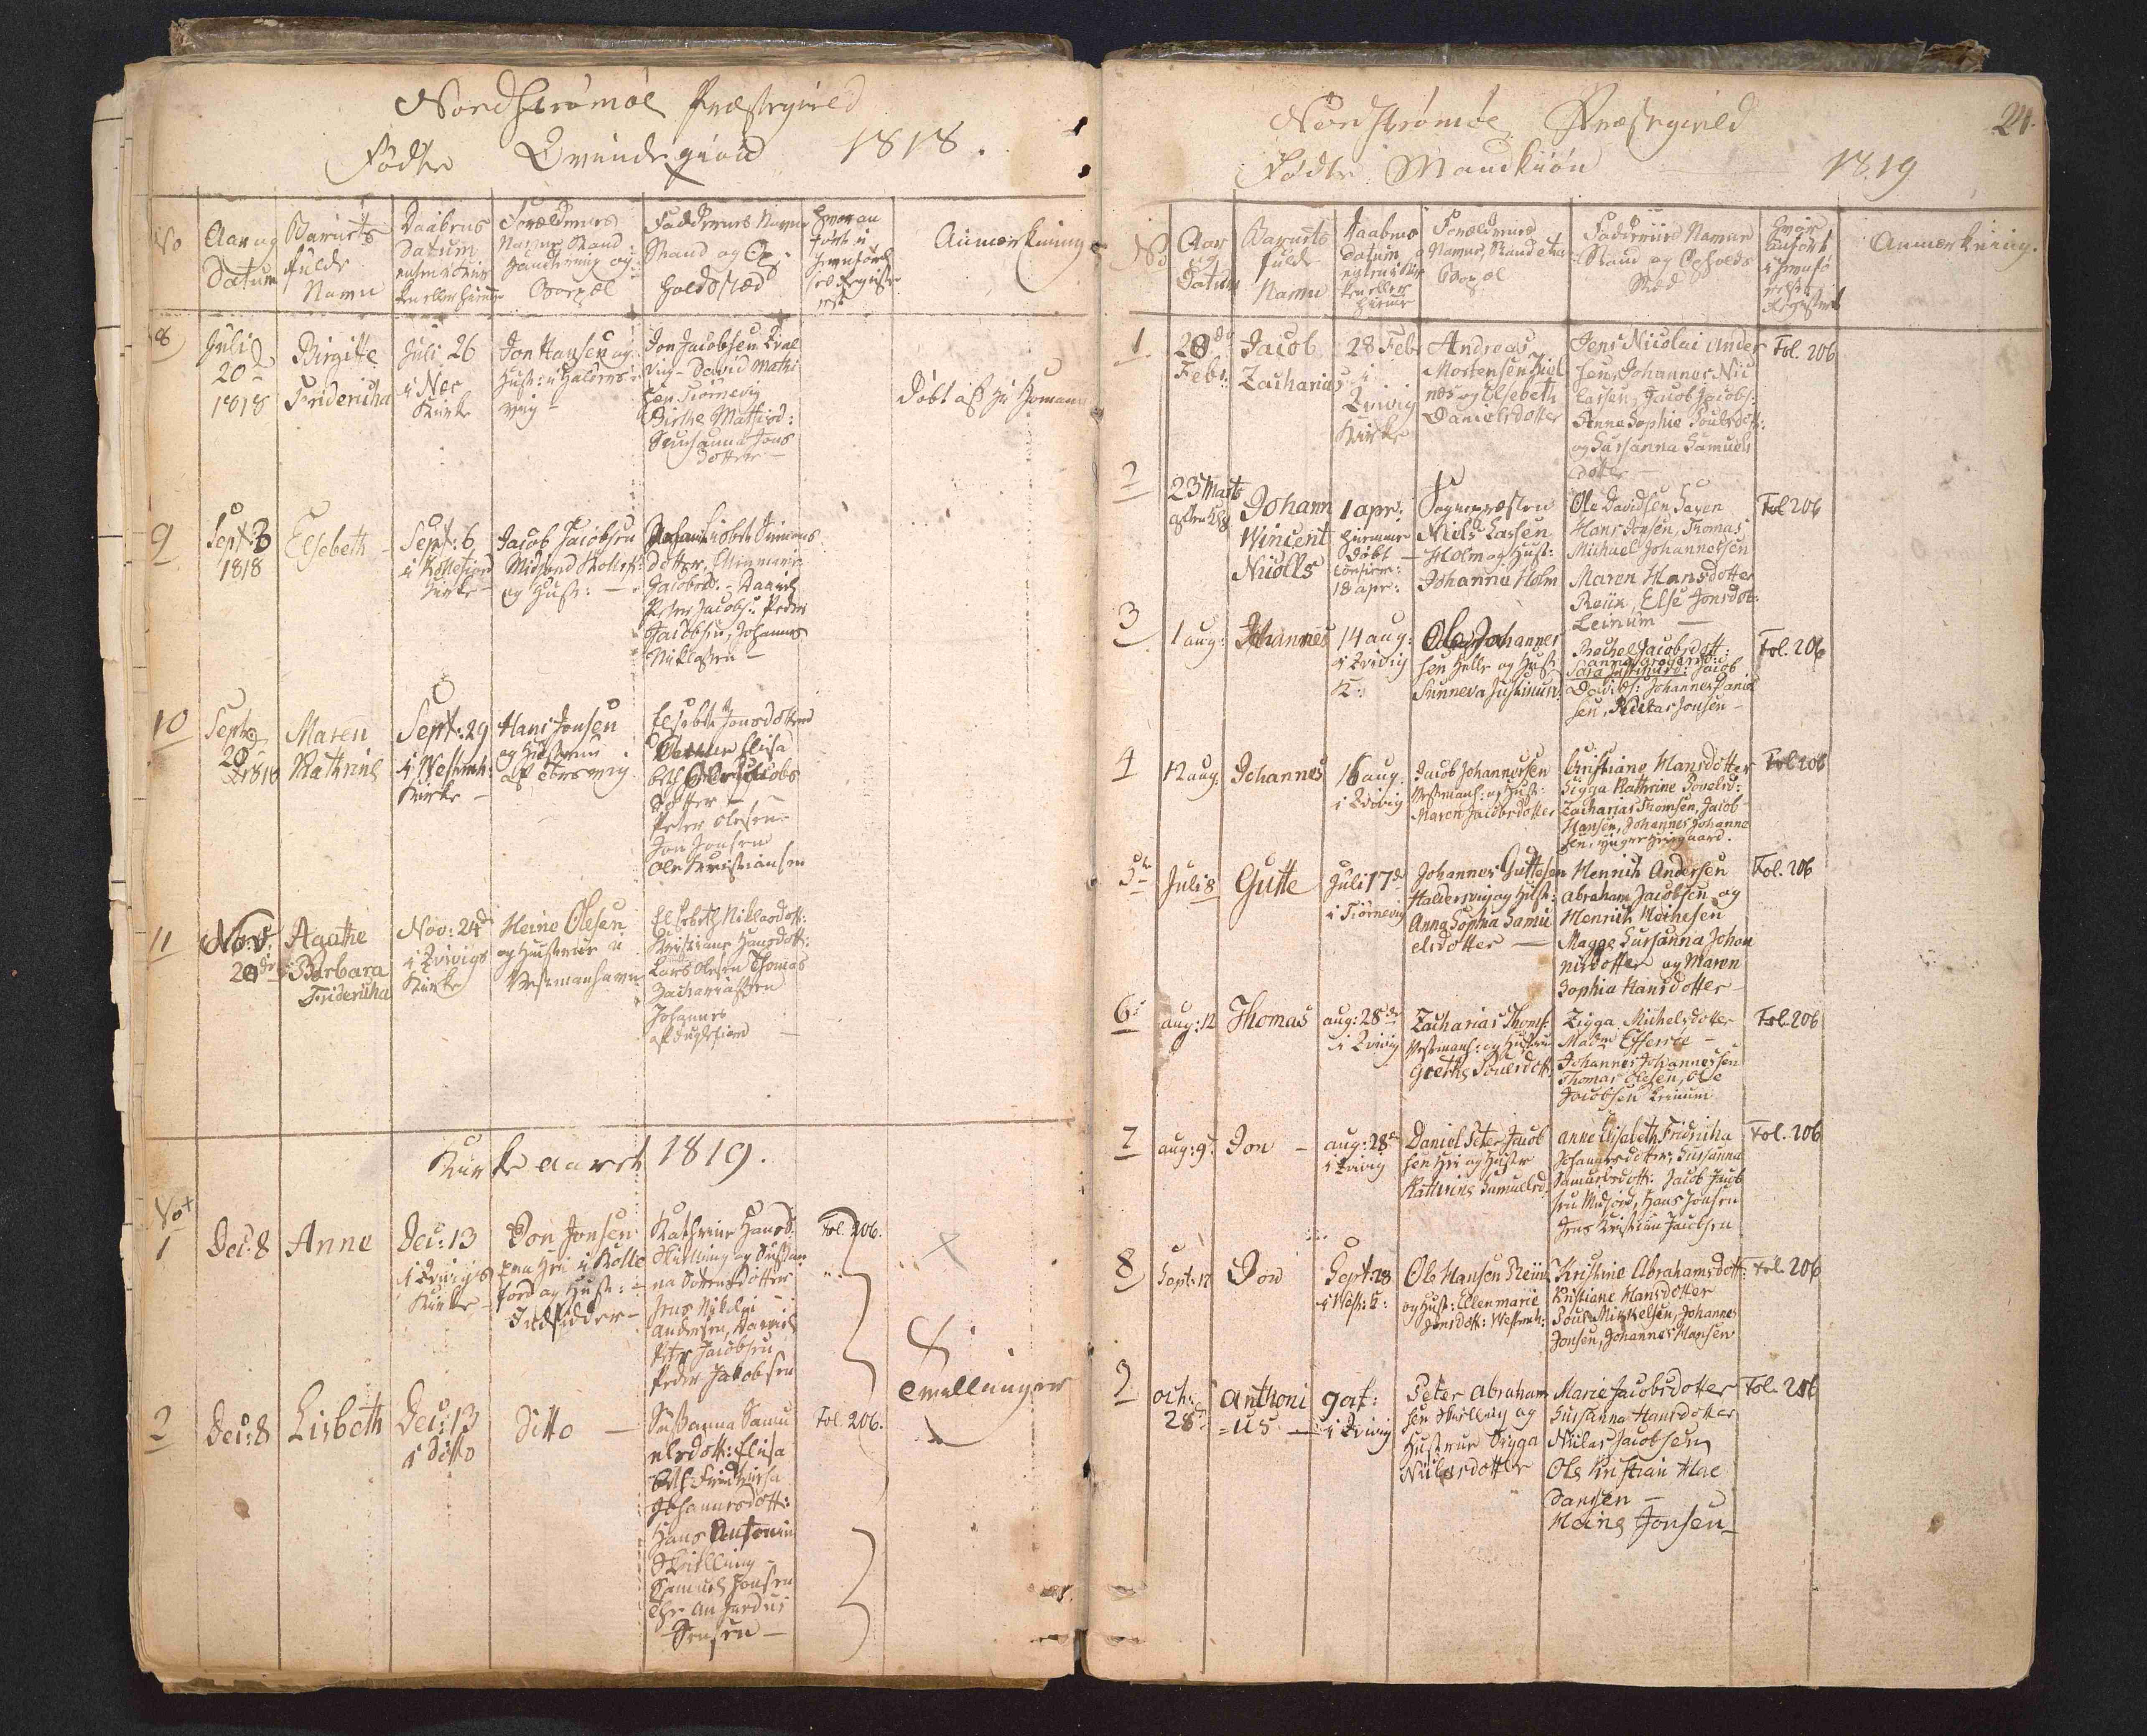 Nordstrømøe Præstegield
Fødte Qvindekiøn 1818.
No
Aar og
Datum
Barnets
fulde
Navn
Daabens
Datum
enten i Kir
ken eller hiemme
Forældrenes
Navne Stand
Handtering og
Boepæl
Faddernes Navne
Stand og Op-
holdsstæd
Hvor an
ført i
Jevnførel
ses Registe
ret
Anmærkning
8
Juli
20d
1818
Birgitte
Fridericha
Juli 26
i Nes
Kirke
Jon Hansen og
Hust: i Halders-
viig -
Jon Jacobsen
David Mathi
sen Tiørnevig
Birthe Mathisd:
Susanna Jons
dotter -
Døbt af
9
Sept: 3
1818
Elsebeth
Sept: 6
i Kollefiord
Kirke -
Jacob Jacobsen
og Hust: -
Simons
dotter,
Jacobsd: - Daniel
Peter Jacobs: Peder
Jacobsen, Johannes
Niklassen -
10
Sept
20
1818
Maren
Kathrine
Sept: 29
i Vestmh:
Kirke -
Hans Jonsen
og Hustrue
Elsebeth Jonsdotter
Jacobs
dotter -
Peter Olesen -
Jon Jonsen
Ole Kristiansen
11
Nov:
20de
Agathe
Barbara
Fridericha
Nov: 24d
i Qvivigs
Kirke
Heine Olesen
og Hustrue i
Vestmanhavn
Elsebeth Niklasdott:
Kristiane Hansdott:
Lars Olesen Thomas
Zachariassen
Johannes
Kirke aaret 1819.
No
1
Dec: 8
Anne
Dec: 13
i Qvivigs
Kirke -
Jon Jonsen
i Kolle
fiord og Hust: -
Indsidder -
Kathrine Hansd:
Skelling og Susan
na Sørensdotter
Jens Nikolai
Andersen, Daniel
Peter Jacobsen
Peder Jakobsen
Fol. 206.
Tvillinger
2
Dec: 8
Lisbeth
Dec: 13
i Ditto
Ditto -
Susanna Samu
elsdott: Elisa
beth Fridricha
Johannesdott:
Hans
Skelling -
Samuel Jonsen
Jensen -
Fol. 206.
Nordstrømøe Præstegield
24.
Fødte Mandkiøn 1819
No
Aar
og
Datum
Barnets
fulde
Navn
Daabens
Datum
enten i Kir
ken eller
hiemme
Forældrenes
Navne, Stand
Boepæl
Faddernes Navne
Stand og Opholds
Stæd
Hvor
anført
i Jevnfø
relses
Registret
Anmærkning.
1
20de
Febr:
Jacob
Zacharias
28 Febr
i
Qvivig
Kirke
Andreas
Mortensen
og Elsebeth
Danielsdotter
Jens Nicolai Ander
sen, Johannes Nic
lassen, Jacob Jacobs:
Anna Sophie Poulsdott:
og Susanna Samuels
dotter -
Fol. 206
2
23 Marts
Johann
Wincent
Nicolls
1 apr:
hiemme
døbt -
confirm:
18 apr:
Sognepræsten
Niels Lassen
Holm og Hust:
Johanna Holm
Ole Davidsen
Hans Jonsen, Thomas
Michael Johannessen
Maren Hansdotter
Else Jonsdot:
Leinum -
Fol 206
3
1 aug:
Johannes
14 aug:
i Qvivig
K:
Ole Johannes
sen Helle og Hust
Sunneva Justinusd:
Rachel Jacobsdott:
Jacob
Davids: Johannes Daniel
sen, Niclas Jonsen -
Fol. 206
4
12 aug:
Johannes
16 aug.
i Qvivig
Jacob Johannessen
Vestmanh: og Hust:
Maren Jacobsdotter
Christiane Hansdotter
Sigga Kathrine Povelsd:
Zacharias Thomsen, Jacob
Hansen, Johannes Johanne
sen,
Fol 206
5te
Juli 8
Gutte
Juli 17de
i Tiørnevig
Johannes Guttesen
Haldersvig og Hust:
Anna Sophia Samu
elsdotter -
Henrich Andersen
Abraham Jacobsen og
Henrich
Susanna Johan
nisdotter og Maren
Sophia Hansdotter -
Fol. 206
6
aug: 12
Thomas
aug: 28de
i Qvivig
Zacharias Thoms:
Vestmanh: og Hustrue
Grethe Poulsdott:
Zigga Michelsdotter
Madm Effersøe -
Johannes Johannessen
Thomas Olesen, Ole
Jacobsen Leinum
Fol. 206
7
aug: 9
Jon -
aug: 28de
i Qvivig
Daniel Peter Jacob
sen og Hustr
Kathrine Samuelsd.
Anne Elisabeth Fridricha
Johannesdotter, Susanna
Samuelsdott: Jacob Jacob
sen, Hans Jonsen
Jens Kristian Jacobsen
Fol. 206
8
Sept: 12
Jon
Sept: 28
i Vest: K:
Ole Hansen
og Hust: Ellen marie
Jonsdott: Westmh:
Kristine Abrahamsdott:
Kristiane Hansdotter
Poul Mikkelsen, Johannes
Jonsen, Johannes Hansen
Fol. 206
9
Oct:
28
Anthoni
=us -
i Qvivig
Peter Abraham
sen Skelling og
Hustrue Sigga
Niclasdotter
Marie Jacobsdotter
Susanna Hansdotter
Niclas Jacobsen
Ole Kristian
Dansen -
Heine Jonsen -
Fol. 206